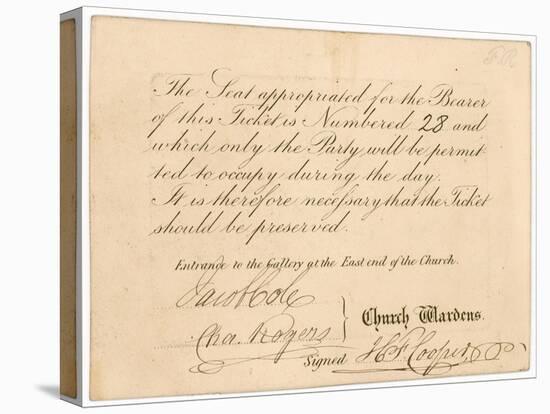 F.R
The Seat appropriated for the Bearer
of this Ticket is Numbered 28 and
which only the Party will be permit
ted to occupy during the day.
It is therefore necessary that the Ticket
should be preserved.
Entrance to the Gallery at the East end of the Church.
Jacob Cole
Cha. Rogers } Church Wardens.
Signed H. F. Cooper